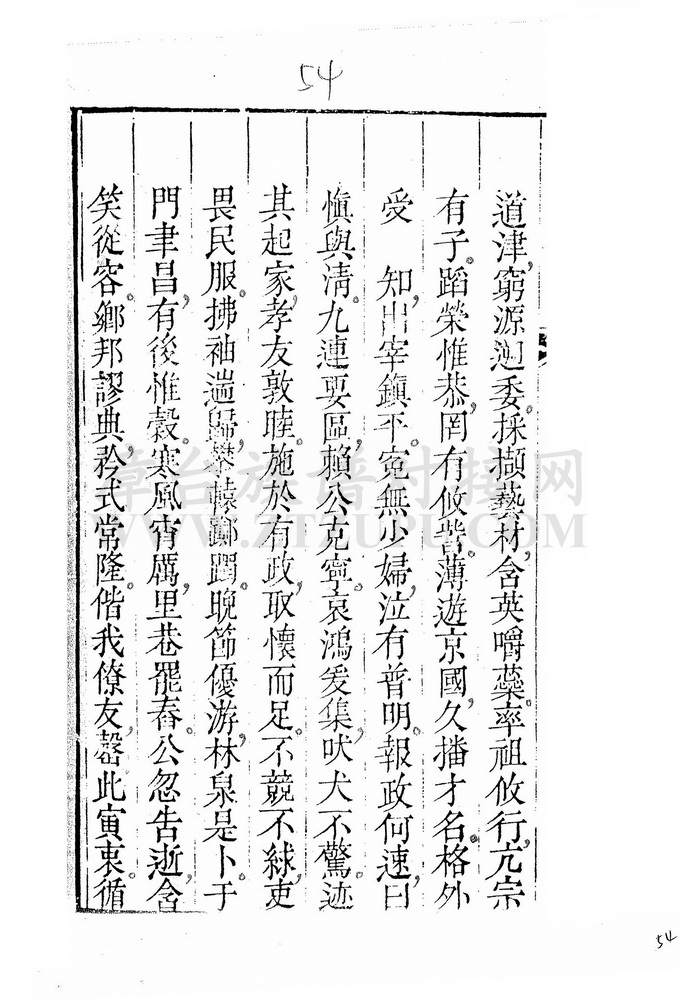 54
道津,窮源遡委。採擷藝材,含英嚼蘂。率祖攸行,亢宗
有子。蹈榮惟恭,罔有攸訾。薄遊京國,久播才名。格外
受 知,出宰鎮平。寃無少婦,泣有普明。報政何速,曰
慎與清。九連要區,賴公克寧。哀鴻爰集,吠犬不驚。迹
其起家,孝友敦睦。施於有政,取懷而足。不競不絿,吏
畏民服。拂袖遄歸,攀轅躑躅。晚節優游,林泉是卜。于
門聿昌,有後惟穀。寒風宵厲,里巷罷舂。公忽告逝,含
笑從容。鄉邦謬典,矜式常隆。偕我僚友,罄此寅衷。循
章台族譜对接网
WWW.ZTZUPU.COM
54